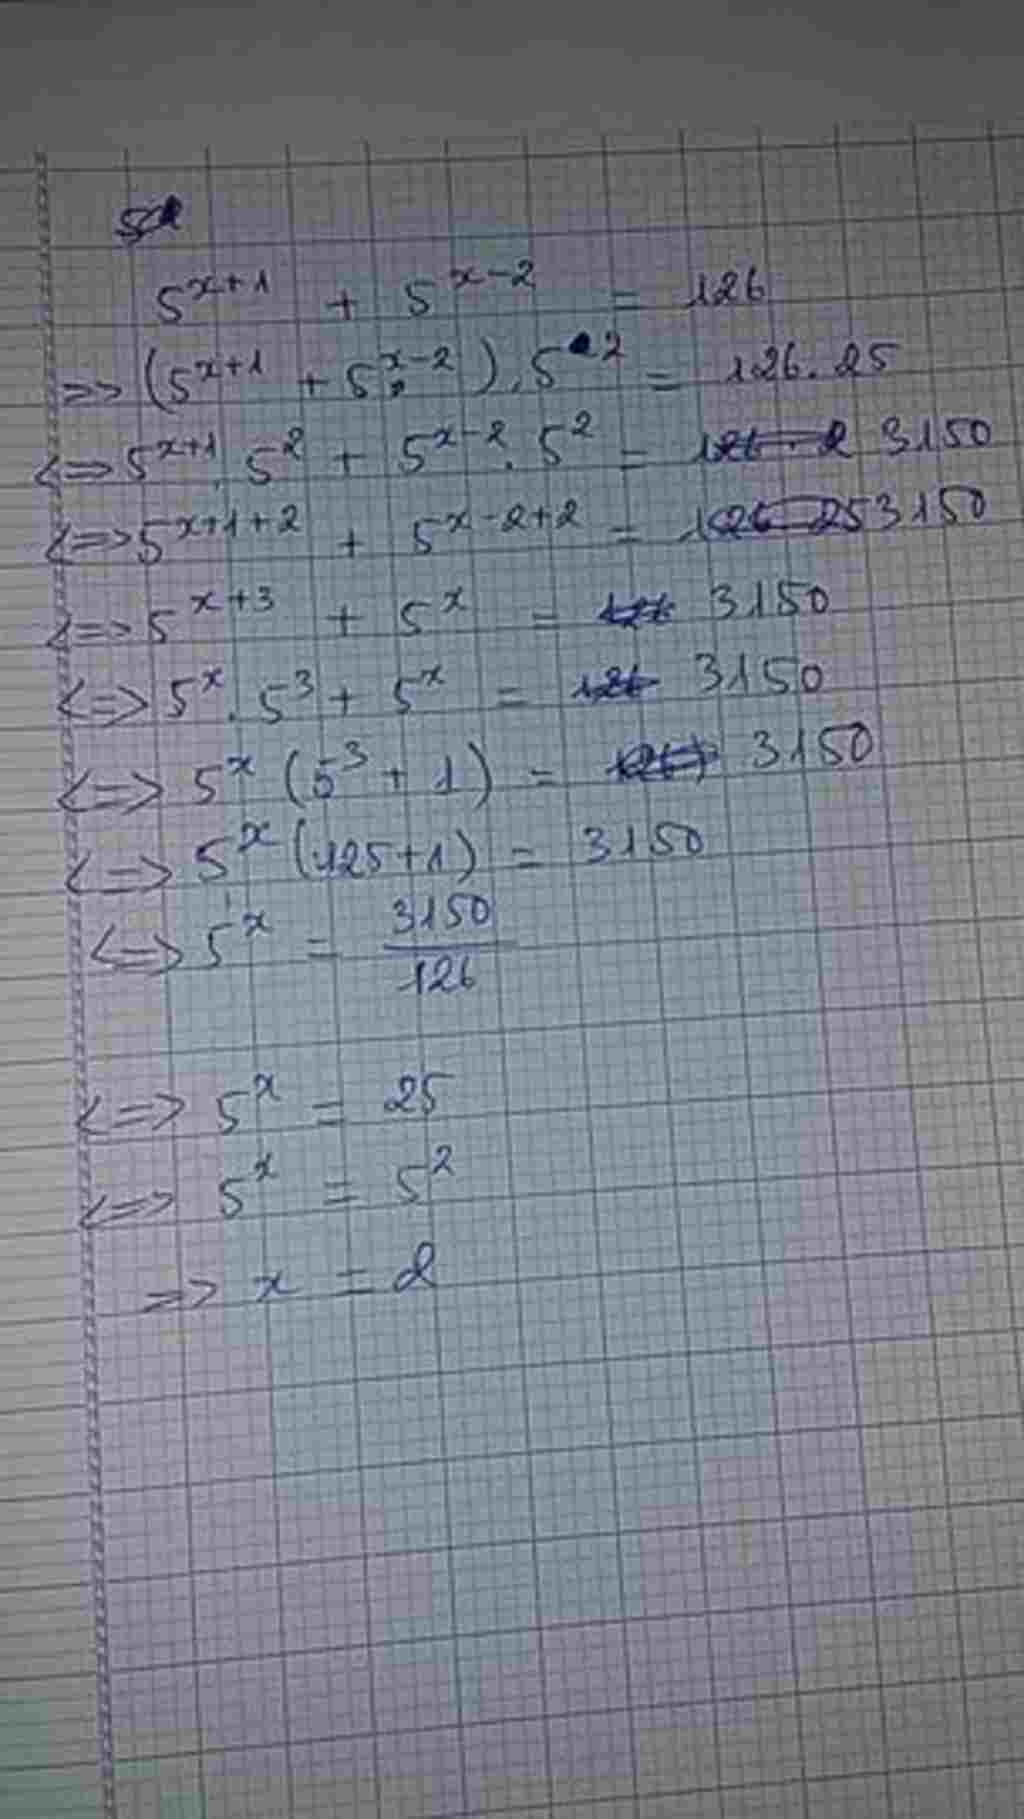 5^{x+1} + 5^{x-2} = 126
=> (5^{x+1} + 5^{x-2}).5^2 = 126.25
<=> 5^{x+1}.5^2 + 5^{x-2}.5^2 = 3150
<=> 5^{x+1+2} + 5^{x-2+2} = 3150
<=> 5^{x+3} + 5^x = 3150
<=> 5^x.5^3 + 5^x = 3150
<=> 5^x (5^3 + 1) = 3150
<=> 5^x (125+1) = 3150
<=> 5^x = \frac{3150}{126}
<=> 5^x = 25
<=> 5^x = 5^2
=> x = 2